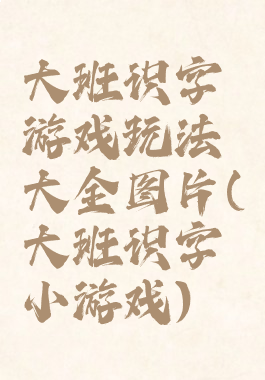 大班识字
游戏玩法
大全图片(
大班识字
小游戏)